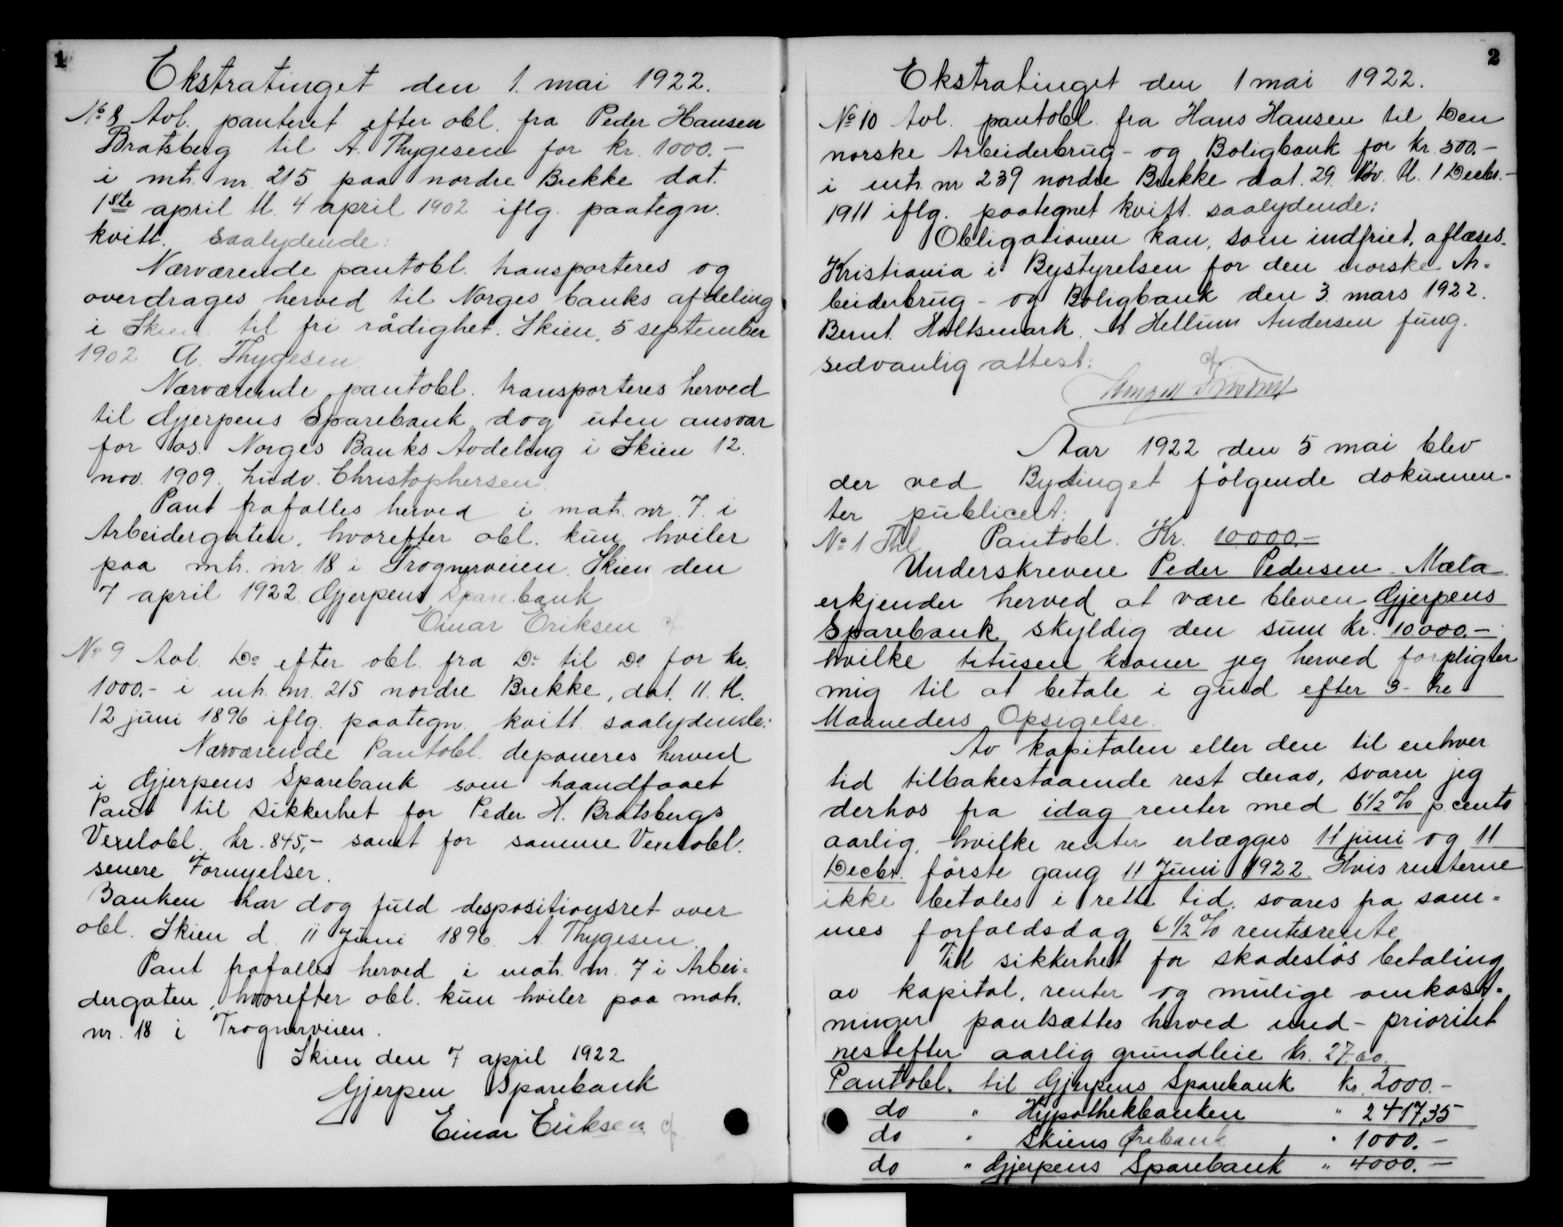 1
Ekstratinget den 1. mai 1922.
No 8 Avl. panteret efter obl. fra Peder Hansen
Bratsberg til A. Thygesen for kr. 1000.-
i mtr. nr. 215 paa nordre Brekke dat.
1ste april tl. 4 april 1902 iflg. paategn.
kvitt. saalydende:
Nærværende pantobl. transporteres og
overdrages herved til Norges banks afdeling
i Skien til fri rådighet. Skien, 5 september
1902 A. Thygesen
Nærværende pantobl. transporteres herved
til Gjerpens Sparebank dog uten ansvar
for os. Norges Banks Avdeling i Skien 12.
nov. 1909. Ludv. Christophersen.
Pant frafalles herved i mat. nr. 7. i
Arbeidergaten, hvorefter obl. kun hviler
paa mtr. nr. 18 i Trognerveien. Skien den
7 april 1922. Gjerpens Sparebank
Einar Eriksen
No 9 Avl. Do efter obl. fra Do til Do for kr.
1000.- i mtr. nr. 215 nordre Brekke, dat. 11. tl.
12 juni 1896 iflg. paategn. kvitt. saalydende:
Nærværende Pantobl. deponeres herved
i Gjerpens Sparebank som haandfaaet
Pant til sikkerhet for Peder H. Bratsbergs
Vexelobl. kr. 845,- samt for samme Vexelobl.
senere Fornyelser.
Banken har dog fuld despositionsret over
obl. Skien d. 11 Juni 1896. A. Thygesen.
Pant frafalles herved i matr. nr. 7 i Arbei-
dergaten, hvorefter obl. kun hviler paa matr.
nr. 18 i Trognerveien.
Skien den 7 april 1922
Gjerpen Sparebank
Einar Eriksen
2
Ekstratinget den 1 mai 1922.
No 10 Avl. pantobl. fra Hans Hansen til Den
norske Arbeiderbrug- og Boligbank for kr. 500.-
i mtr. nr 239 nordre Brekke dat. 29. Nov. tl. 1 Decbr.-
1911 iflg. paategnet kvitt. saalydende:
Obligationen kan, som indfriet, aflæses.
Kristiania i Bystyrelsen for den norske Ar-
beiderbrug- og Boligbank den 3. mars 1922.
Bernt Holtsmark. M Hellum Andersen fung.
sedvanlig attest:
Aar 1922 den 5 mai blev
der ved Bytinget følgende dokumen-
ter publicert:
No 1 Thl Pantobl. Kr. 10.000.-
Underskrevne Peder Pedersen Mæla
erkjender herved at være bleven Gjerpens
Sparebank skyldig den sum kr. 10.000.-
hvilke titusen kroner jeg herved forpligter
mig til at betale i guld efter 3- tre
Maaneders Opsigelse.
Av kapitalen eller den til enhver
tid tilbakestaaende rest derav, svarer jeg
derhos fra idag renter med 6 1/2 % p.cents
aarlig, hvilke renter erlægges 11 juni og 11
Decbr. første gang 11 Juni 1922. Hvis renterne
ikke betales i rette tid, svares fra sam-
mes forfaldsdag 6 1/2 % rentesrente
Til sikkerhet for skadesløs betaling
av kapital, renter og mulige omkost-
ninger pantsættes herved med - prioritet
nestefter aarlig grundleie kr. 27.00.
Pantobl. til Gjerpens Sparebank kr. 2000.-
do " Hypothekbanken " 2417,35
do " Skiens Ørebank " 1000.-
do " Gjerpens Sparebank " 4000.-